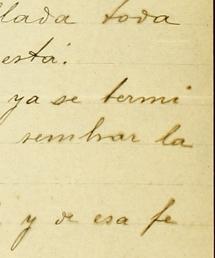 llada toda
está.
ya se termi
sembrar la
y de esa fe